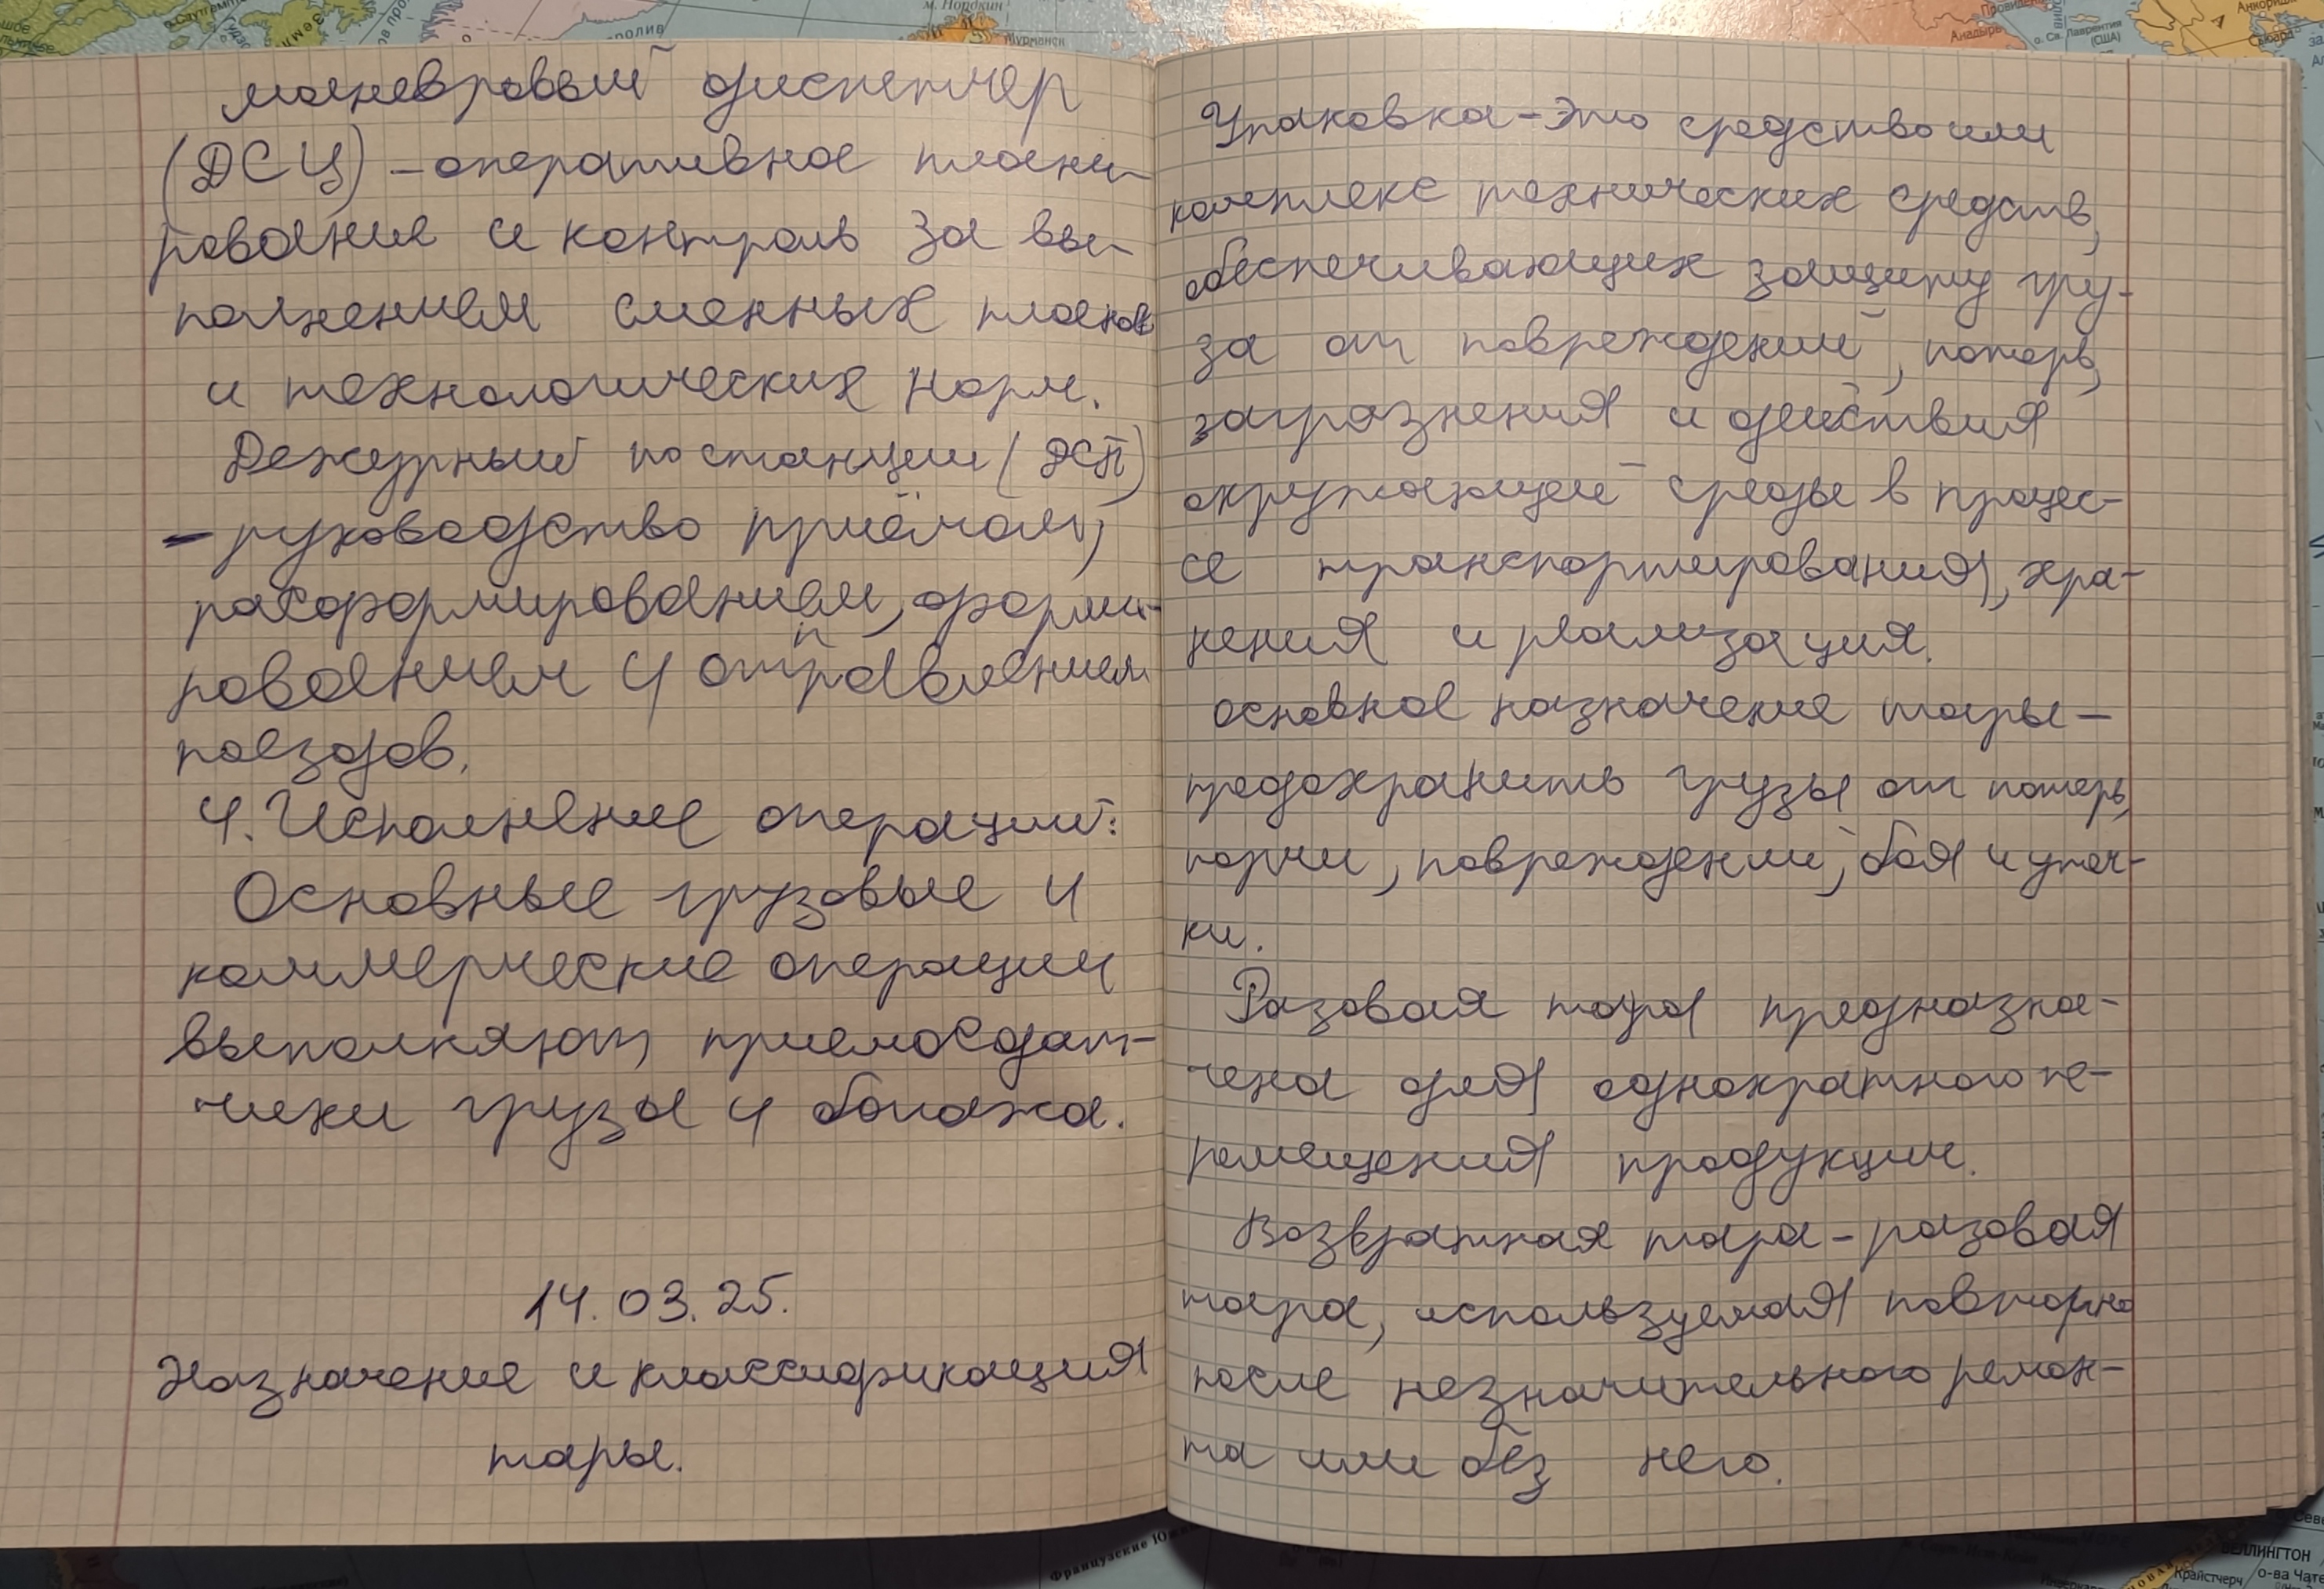 маневровый диспетчер
(ДСЦ) – оперативное плани-
рование и контроль за вы-
полнением сменных планов
и технологических норм.
Дежурный по станции (ДСП)
– руководство приёмом,
расформированием, форми-
рованием и отправлением
поездов.
4. Исполнение операций:
Основные грузовые и
коммерческие операции
выполняют приемосдат-
чики груза и багажа.
14.03.25.
Назначение и классификация
тары.
Упаковка – это средство или
комплекс технических средств,
обеспечивающих защиту гру-
за от повреждений, потерь,
загрязнения и действия
окружающей среды в процес-
се транспортирования, хра-
нения и реализация.
основное назначение тары –
предохранить грузы от потерь,
порчи, повреждении, боя и утеч-
ки.
Разовая тара предназна-
чена для однократного пе-
ремещения продукции.
Возвратная тара – разовая
тара, используемая повторно
после незначительного ремон-
та или без него.
м. Нордкин
Мурманск
Анадырь
о. Св. Лаврентия
(США)
Французские Юж
ВЕЛЛИНГТОН
Крайстчерч
о-ва Чата